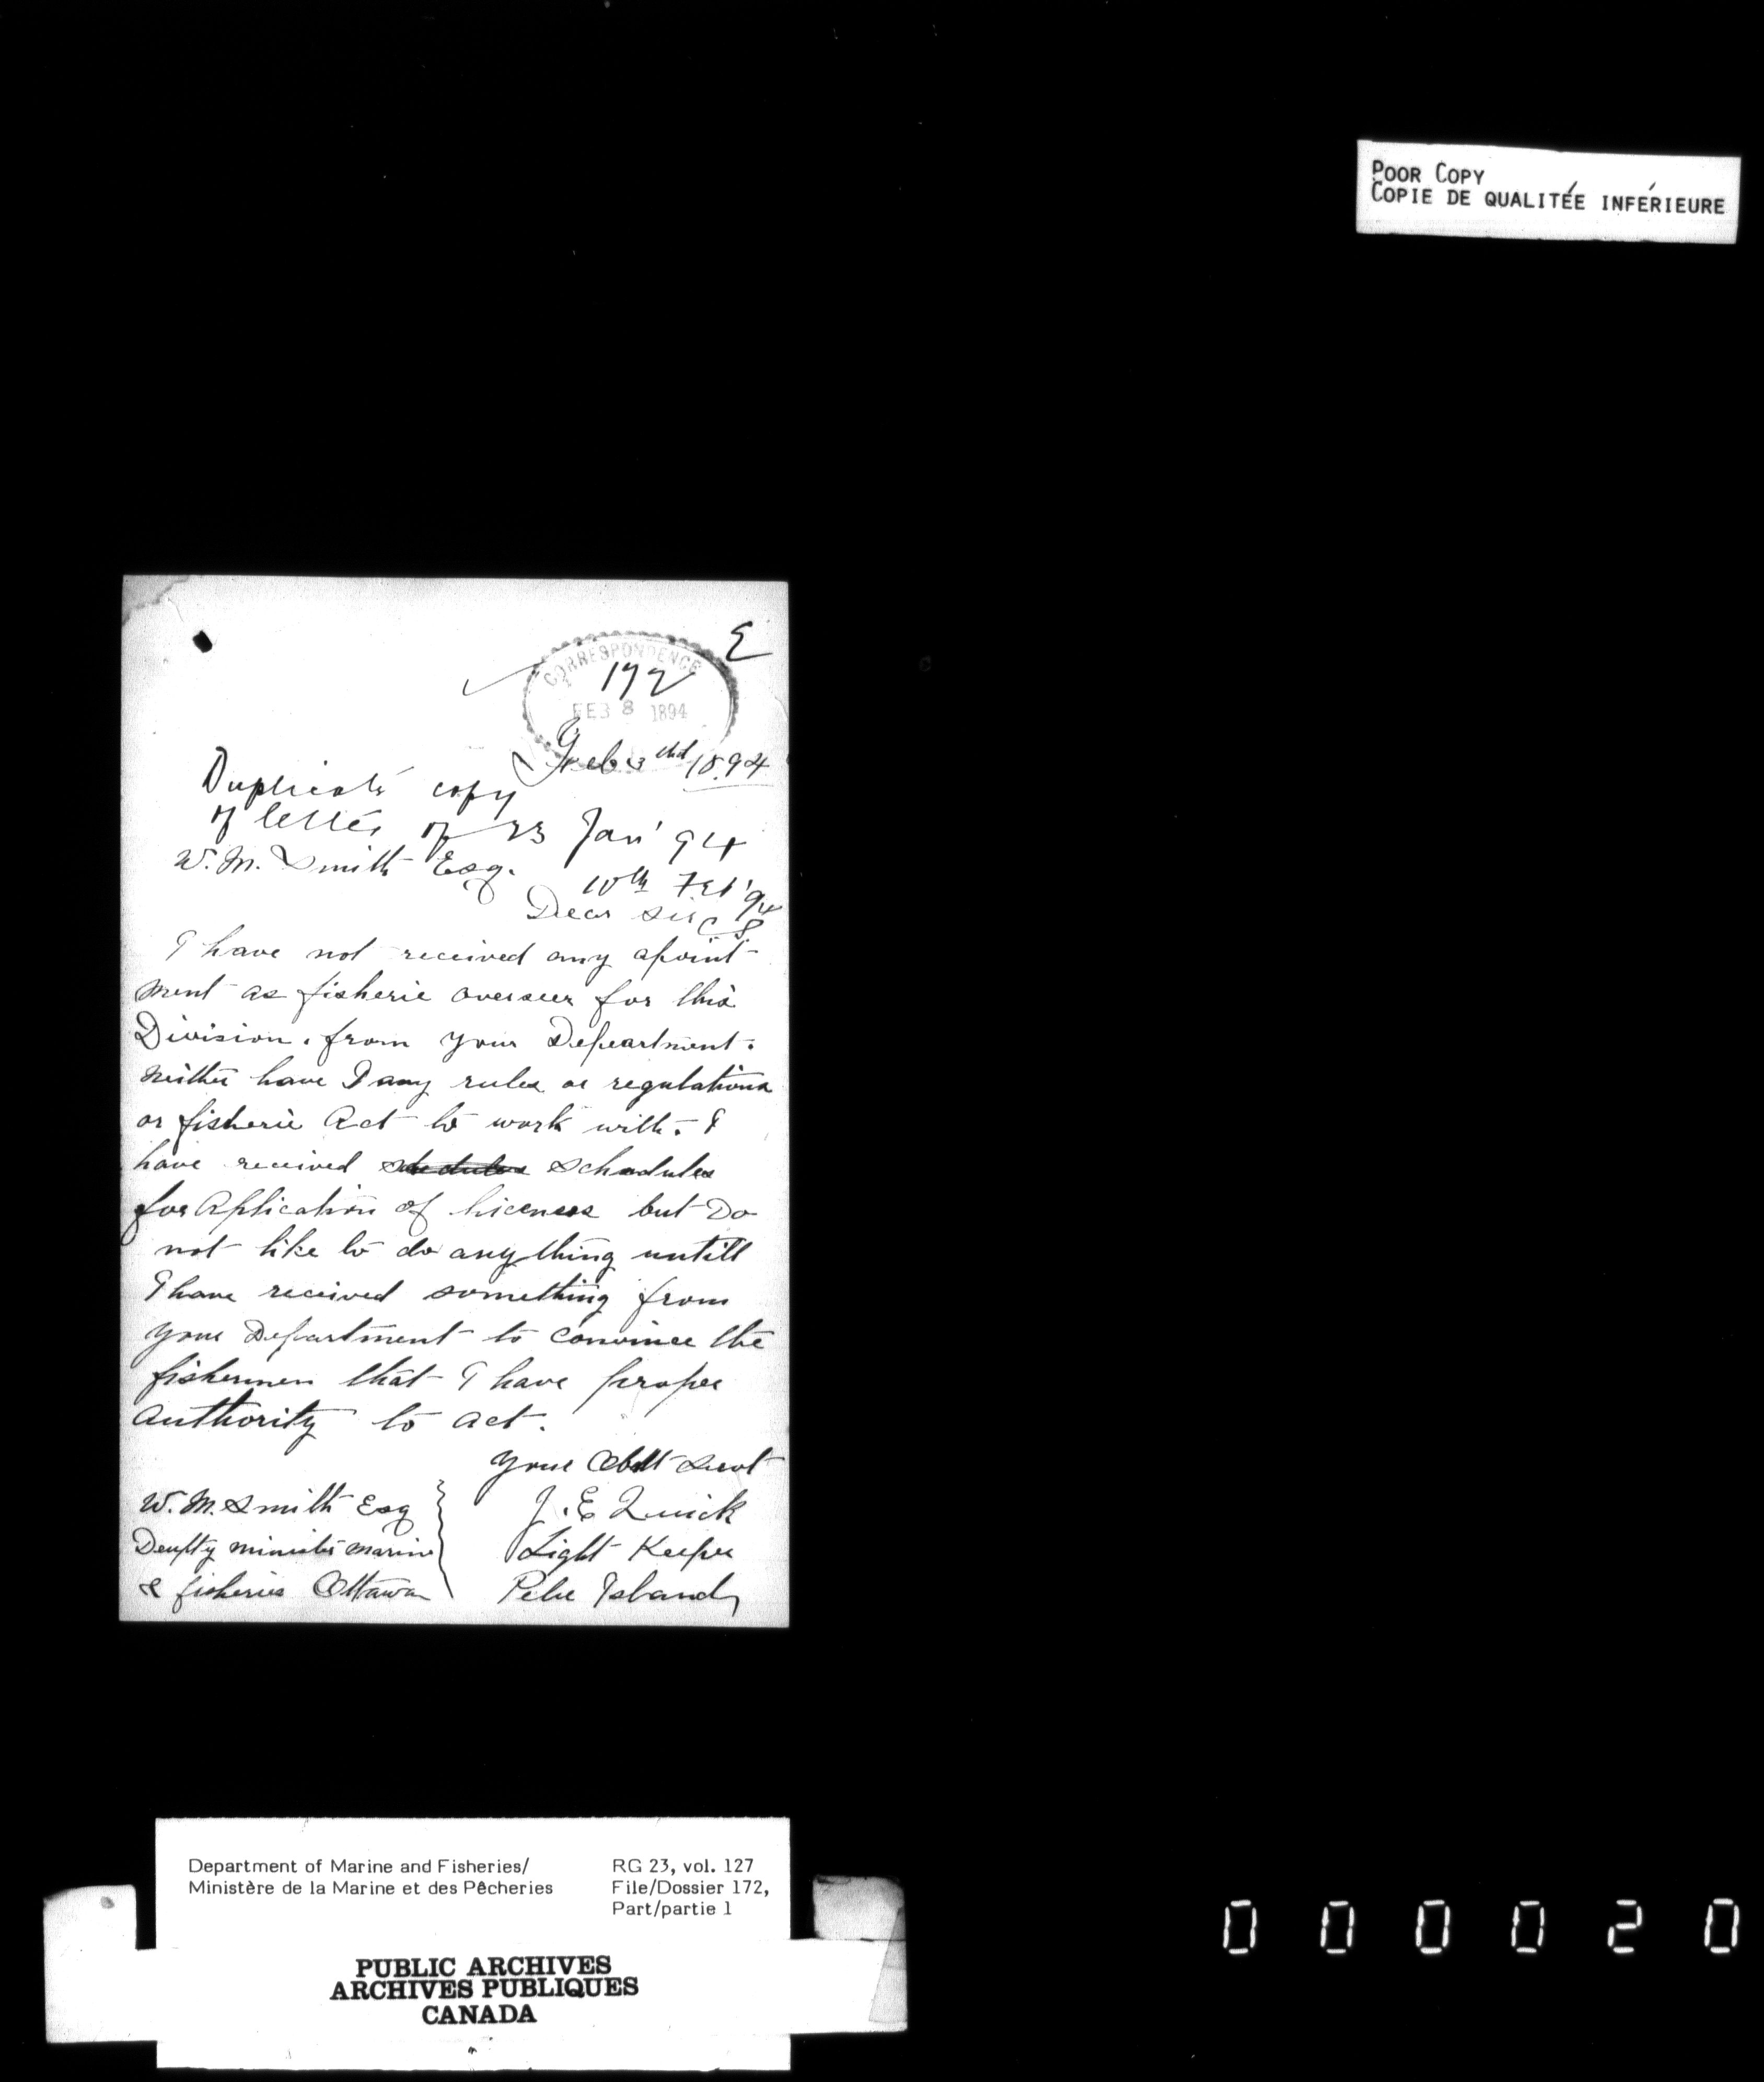 POOR COPY
COPIE DE QUALITÉE INFÉRIEURE
E
CORRESPONDENCE
172
FEB 8 1894
Feb 3rd 1894
Duplicate copy
of letter of 23 Jan' 94
W. M. Smith Esq.
10th Feb '94
Dear Sir
I have not received any apoint-
ment as fisherie overseer for this
Division. from your Department.
neither have I any rules or regulations
or fisherie Act to work with. I
have received schedules schedules
for Aplication of licenses but Do
not like to do anything untill
I have received something from
your Department to convince the
fishermen that I have proper
Authority to act.
your Obdt Servt
W. M. Smith Esq
J. E. Quick
Deupty minister marine
Light Keeper
& fisheries Ottawa
Pelee Island
Department of Marine and Fisheries/
Ministère de la Marine et des Pêcheries
RG 23, vol. 127
File/Dossier 172,
Part/partie 1
PUBLIC ARCHIVES
ARCHIVES PUBLIQUES
CANADA
0 0 0 0 2 0